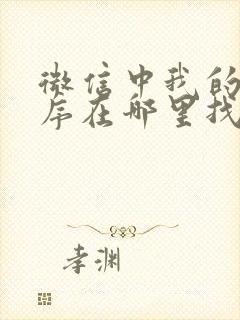 微信中我的
序在哪里找
李渊